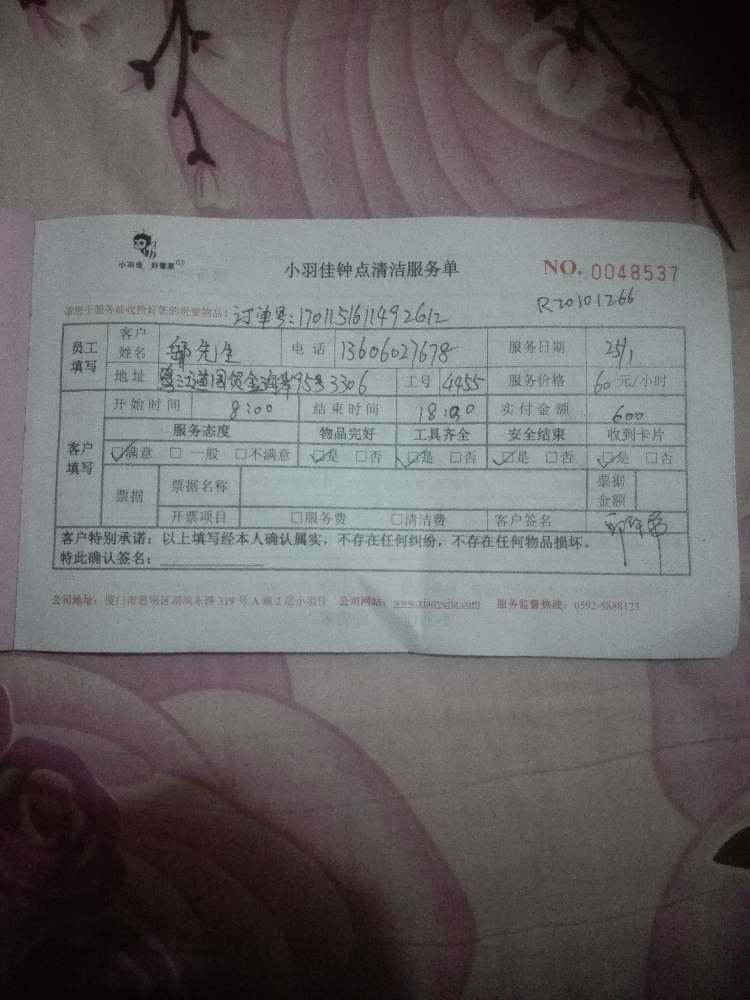 小羽佳 好管家
小羽佳钟点清洁服务单
NO. 0048537
R20101266
请您于服务前收拾好您的贵重物品! 订单号:1701151611492612
员工填写 客户姓名 先生 电话 13606027678 服务日期 25/1
地址 道国贸金海岸95号3306 工号 4455 服务价格 60 元/小时
客户填写 开始时间 8:00 结束时间 18:00 实付金额 600
服务态度 物品完好 工具齐全 安全结束 收到卡片
☑满意 □一般 □不满意 ☑是 □否 ☑是 □否 ☑是 □否 ☑是 □否
票据 票据名称 票据金额
开票项目 □服务费 □清洁费 客户签名
客户特别承诺:以上填写经本人确认属实,不存在任何纠纷,不存在任何物品损坏。
特此确认签名:
公司地址:厦门市思明区湖滨东路 319 号 A 幢 2 层小羽佳 公司网站:www.xiaoyujia.com 服务监督热线:0592-5888123